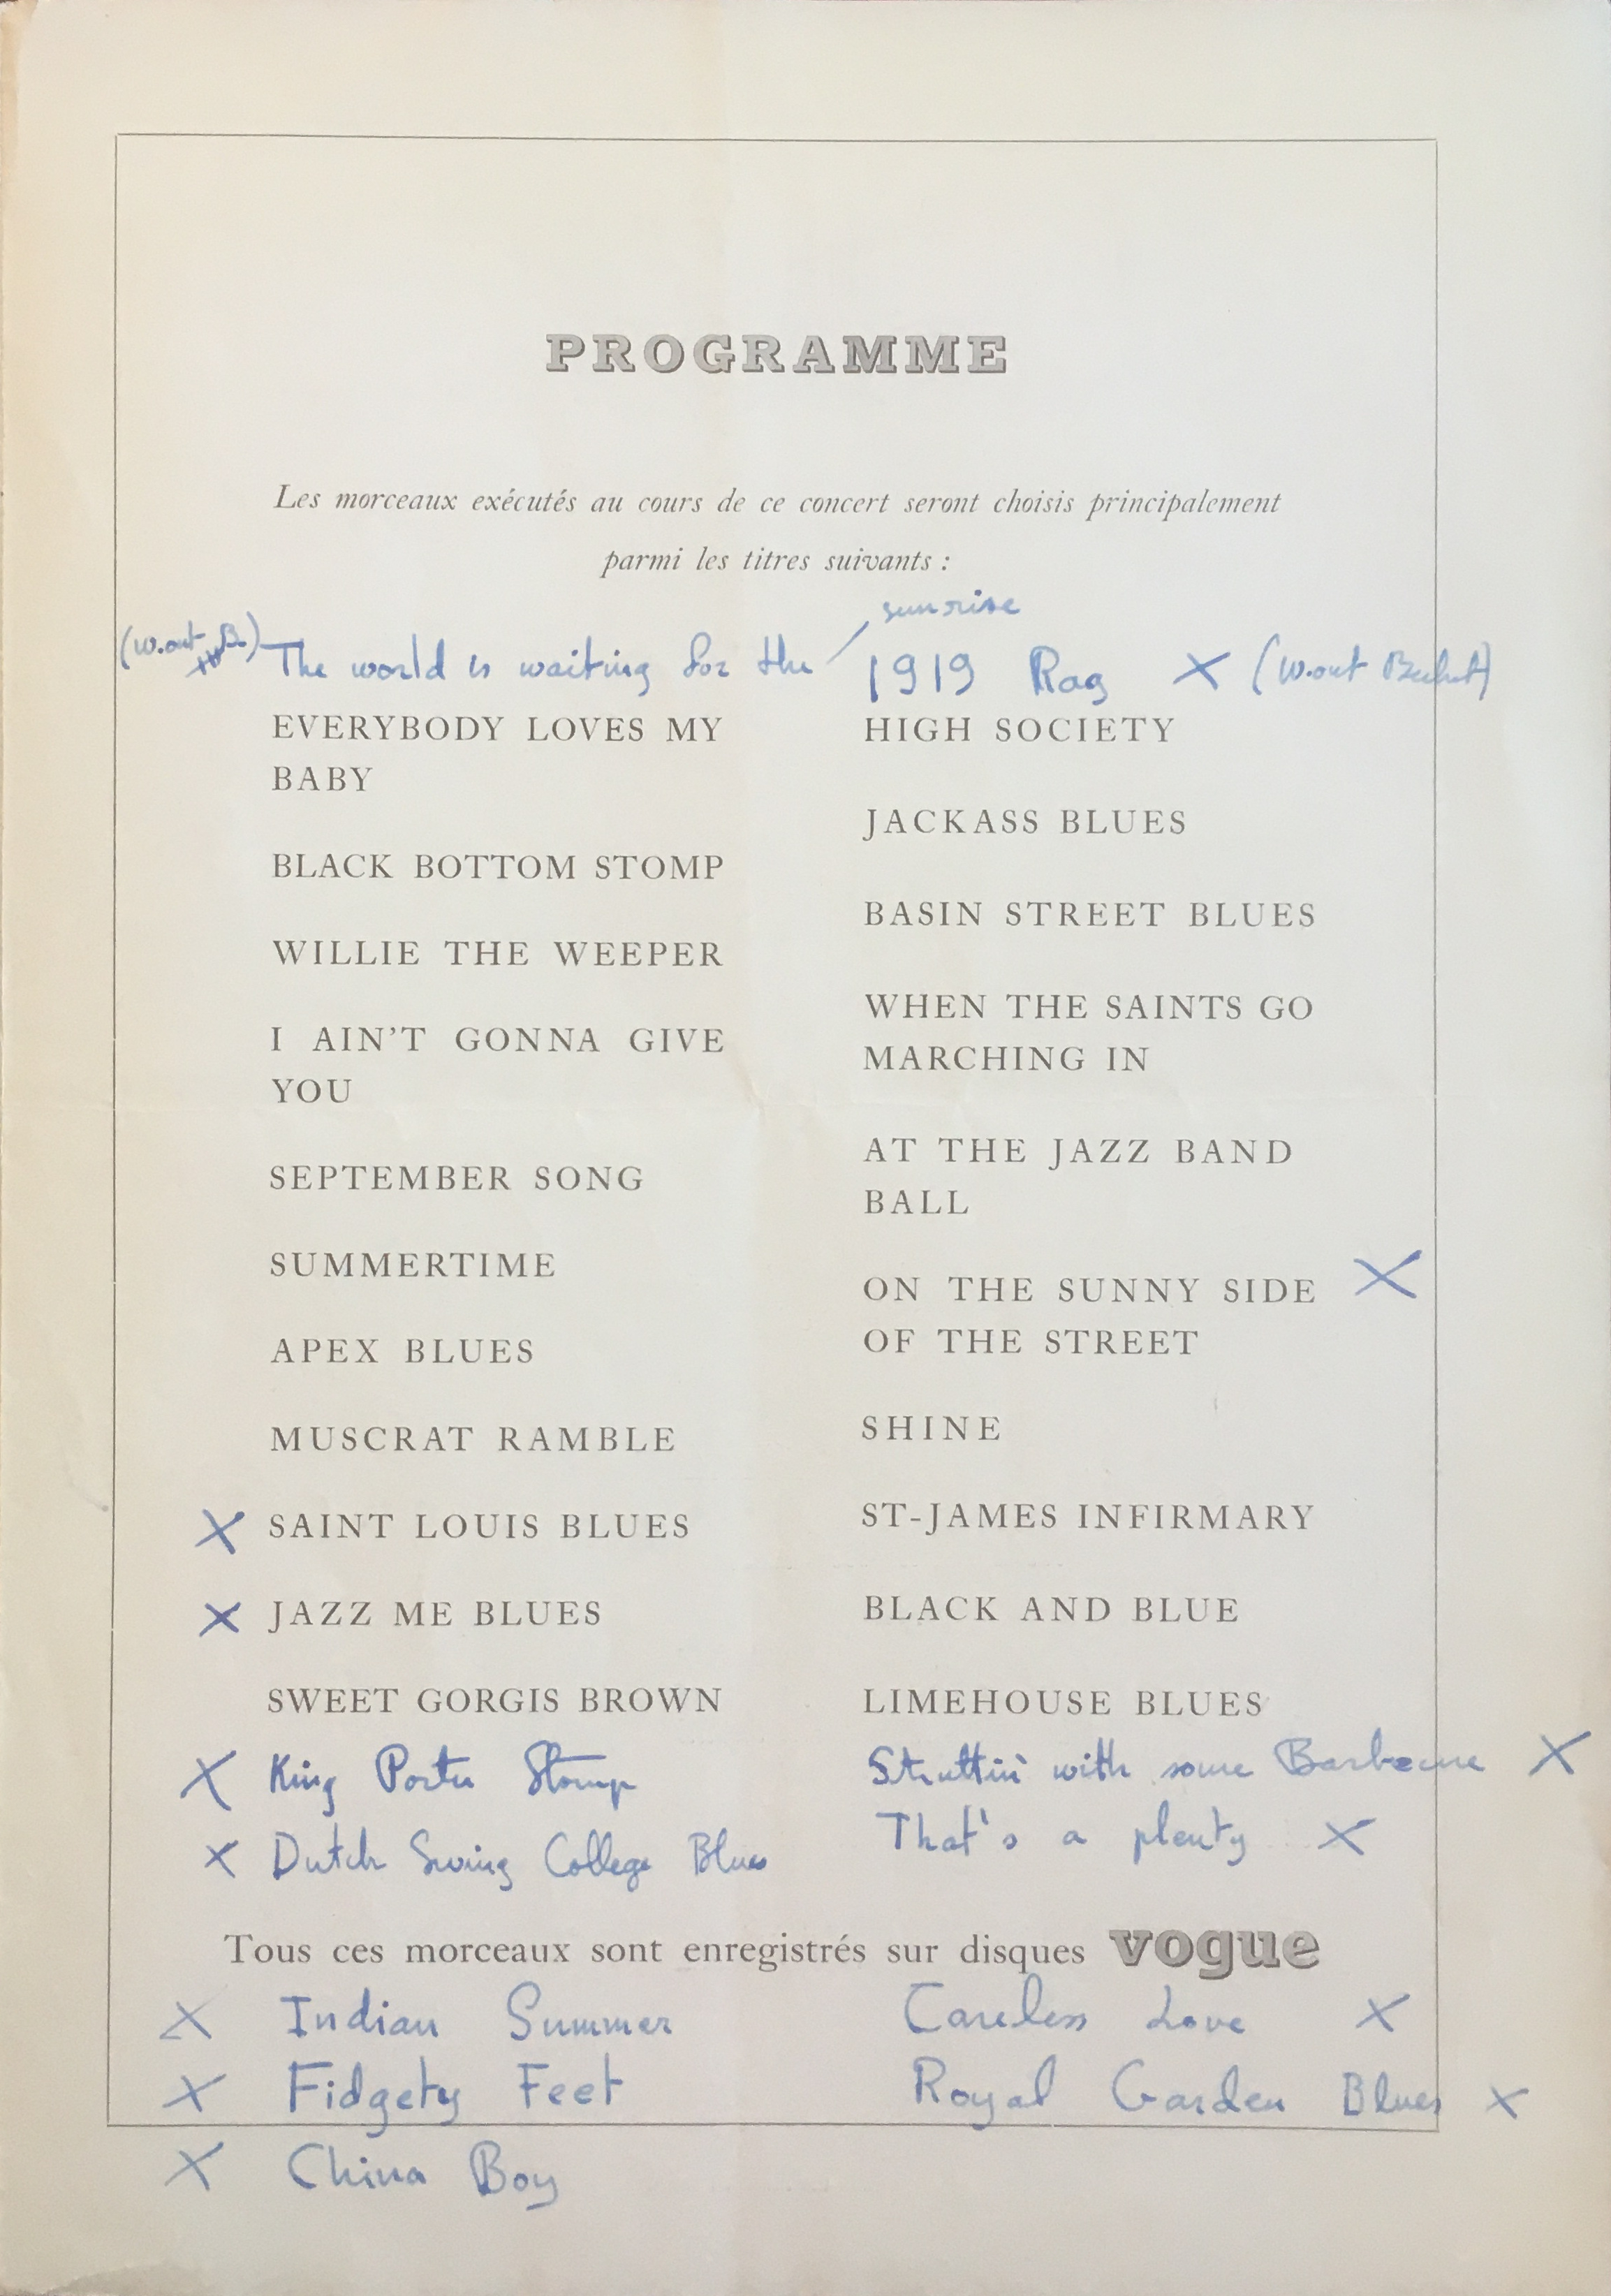 PROGRAMME
Les morceaux exécutés au cours de ce concert seront choisis principalement
parmi les titres suivants :
(w.out B.) The world is waiting for the sunrise
EVERYBODY LOVES MY
BABY
BLACK BOTTOM STOMP
WILLIE THE WEEPER
I AIN'T GONNA GIVE
YOU
SEPTEMBER SONG
SUMMERTIME
APEX BLUES
MUSCRAT RAMBLE
X SAINT LOUIS BLUES
X JAZZ ME BLUES
SWEET GORGIS BROWN
X King Porter Stomp
X Dutch Swing College Blues
1919 Rag X (w.out Bechet)
HIGH SOCIETY
JACKASS BLUES
BASIN STREET BLUES
WHEN THE SAINTS GO
MARCHING IN
AT THE JAZZ BAND
BALL
ON THE SUNNY SIDE X
OF THE STREET
SHINE
ST-JAMES INFIRMARY
BLACK AND BLUE
LIMEHOUSE BLUES
Struttin' with some Barbecue X
That's a plenty X
Tous ces morceaux sont enregistrés sur disques vogue
X Indian Summer
X Fidgety Feet
X China Boy
Careless Love X
Royal Garden Blues X